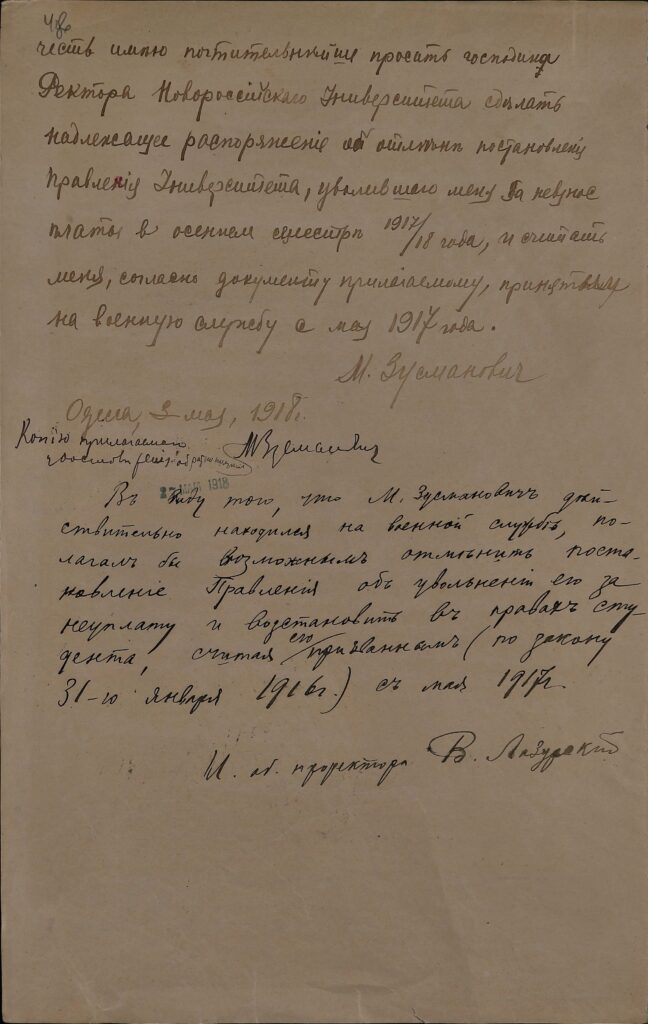 честь имѣю почтительнѣйше просить господина
Ректора Новороссійскаго Университета сдѣлать
надлежащее распоряженіе об отмѣнѣ постановленія
Правленія Университета, уволившаго меня за невзнос
платы в осеннем семестрѣ 1917/18 года, и считать
меня, согласно документу прилагаемому, принятым
на военную службу с мая 1917 года.
М. Зусманович
Одесса, 3 мая, 1918 г.
Копію прилагаемого
обратно получил
МЗусманович
МАЯ 1918
Въ виду того, что М. Зусмановичъ дѣй-
ствительно находился на военной службѣ, по-
лагалъ бы возможнымъ отмѣнить поста-
новленіе Правленія объ увольненіи его за
неуплату и возстановить въ правахъ сту-
дента, считая его призваннымъ (по закону
31-го января 1916 г.) съ мая 1917 г.
И. об. проректора В. Лазурскій